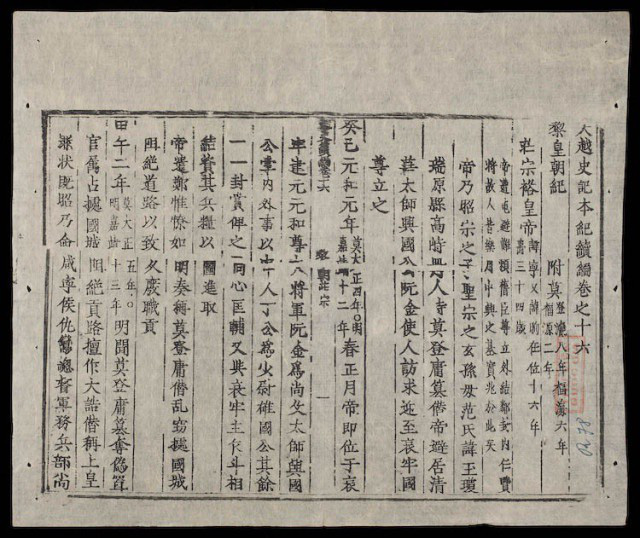 大越史記本紀續編卷之十六
黎皇朝紀 附莫 登瀛八年福海六年
福源二年
莊宗裕皇帝 諱寧又諱昫在位十六年
壽三十四歲
帝遭屯遯難賴舊臣尊立外結鄰好內任賢
將故人皆樂用中興之基實兆於此矣
帝乃昭宗之子聖宗之玄孫母范氏諱玉瓊
瑞原縣高峙冊人時莫登庸篡僭帝避居清
華太師興國公阮金使人訪求迎至哀牢國
尊立之
癸巳元和元年 莫大正四年○明
嘉靖十二年 春正月帝即位于哀
黎朝莊宗 一
牢建元元和尊大將軍阮金爲尚父太師興國
公掌內外事以中人丁公爲少尉雄國公其餘
一一封賞俾之同心匡輔又與哀牢主乍斗相
結資其兵糧以圖進取
帝遣鄭惟憭如明奏稱莫登庸僭亂竊據國城
阻絕道路以致久廢職貢
甲午二年 莫大正五年○
明嘉靖十三年 明聞莫登庸篡奪僞置
官屬占據國城阻絕貢路擅作大誥僭稱上皇
罪狀既昭乃命咸寧侯仇鸞總督軍務兵部尚